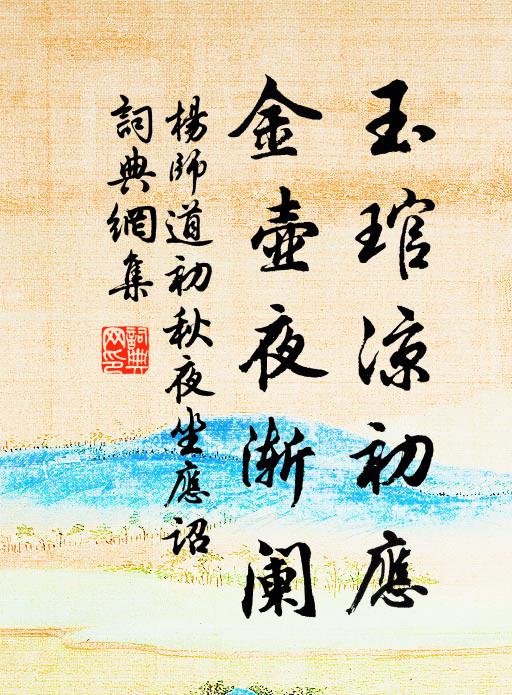 玉琯凉初應
金壺夜渐阑
楊師道初秋夜坐應詔
詞典網集
詞典网印